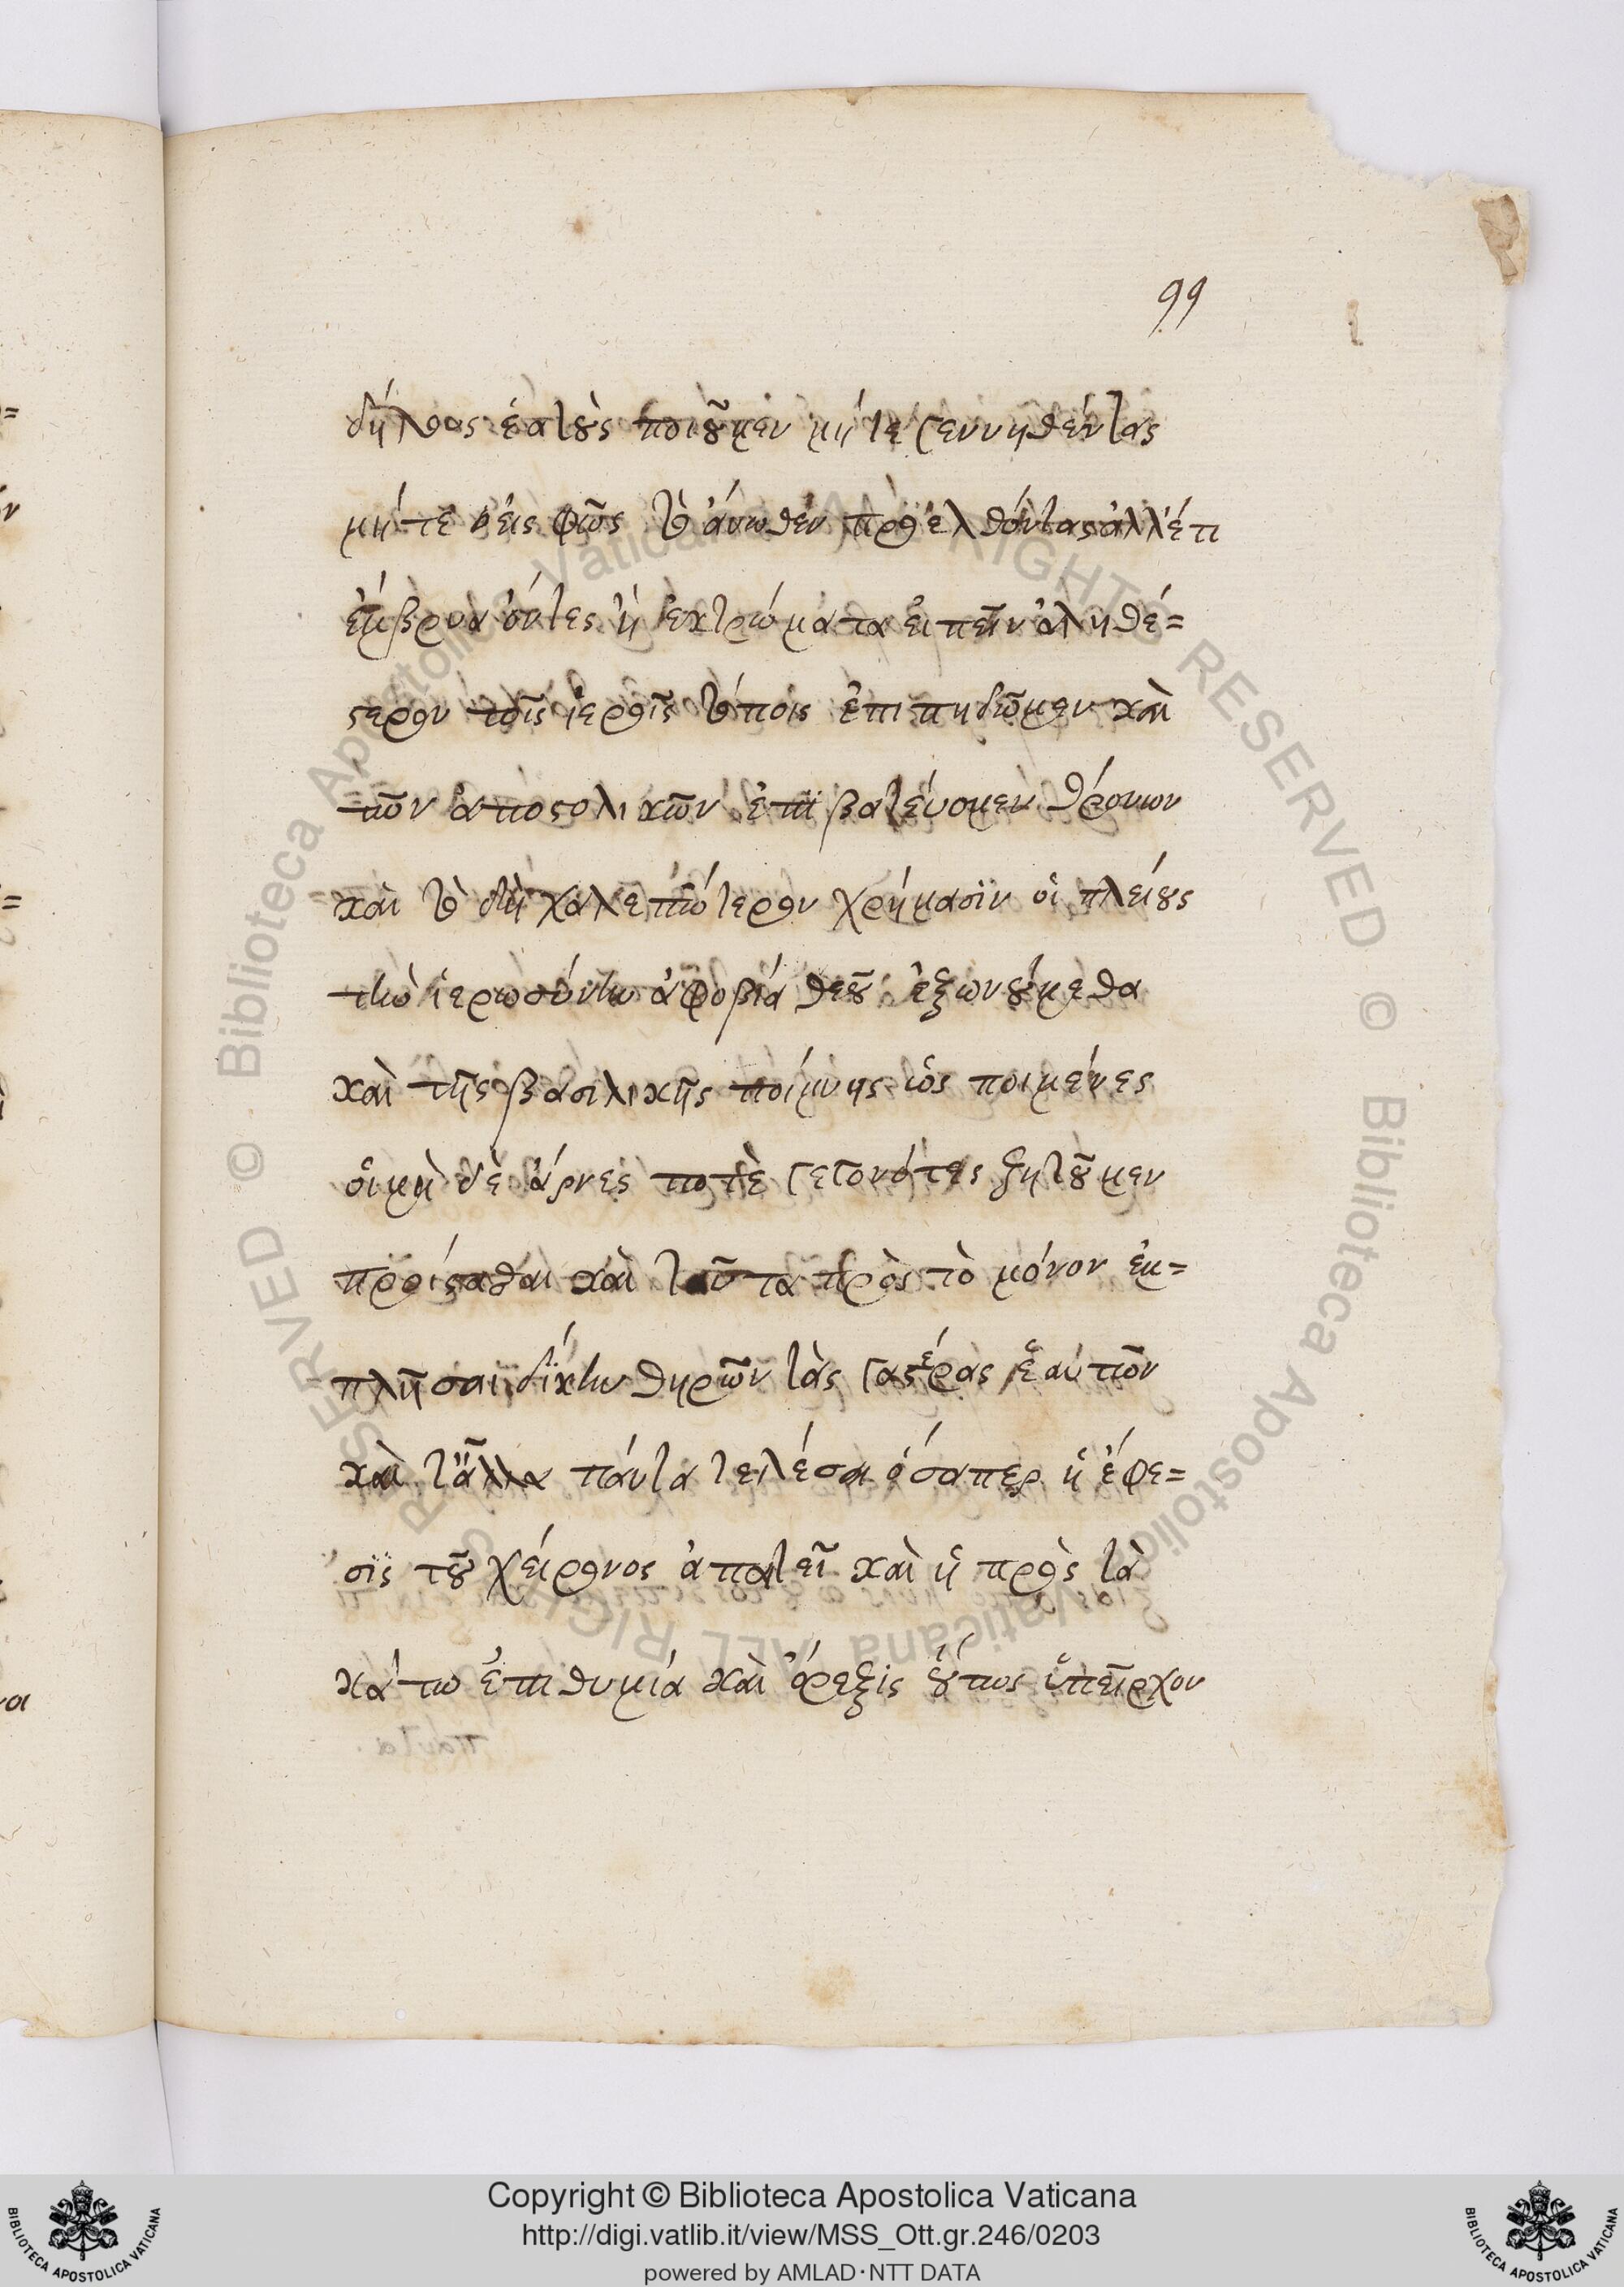 99
δήλους ἑατοὺς ποιοῦμεν μήτε γεννηθέντας
μήτε εἰς φῶς τὸ ἄνωθεν προελθόντας ἀλλ' ἔτι
ἔμβρυα ὄντες ἢ ἐκτρώματα εἰπεῖν ἀληθέ=
στερον τοῖς ἱεροῖς τόποις ἐπιπηδῶμεν καὶ
τῶν ἀποστολικῶν ἐπιβατεύομεν θρόνων
καὶ τὸ δὴ χαλεπώτερον χρήμασιν οἱ πλείους
τὴν ἱερωσύνην ἀφοβίᾳ θεοῦ ἐξωνούμεθα
καὶ τῆς βασιλικῆς ποίμνης ὡς ποιμένες
οἱ μὴ δὲ ἄρνες ποτὲ γεγονότες ζητοῦμεν
προΐστασθαι καὶ ταῦτα πρὸς τὸ μόνον ἐμ=
πλῆσαι δίκην θηρῶν τὰς γαστέρας ἑαυτῶν
καὶ τἄλλα πάντα τελέσαι ὅσαπερ ἡ ἔφε=
σις τοῦ χείρονος ἀπαιτεῖ καὶ ἡ πρὸς τὰ
κάτω ἐπιθυμία καὶ ὄρεξις οὕτως ὑπεῖρχον
Copyright © Biblioteca Apostolica Vaticana
http://digi.vatlib.it/view/MSS_Ott.gr.246/0203
powered by AMLAD·NTT DATA
BIBLIOTECA APOSTOLICA VATICANA
BIBLIOTECA APOSTOLICA VATICANA
© Biblioteca Apostolica Vaticana ALL RIGHTS RESERVED
© Biblioteca Apostolica Vaticana ALL RIGHTS RESERVED